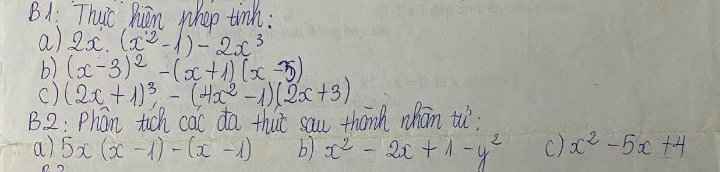 B1: Thực hiện phép tính:
a) 2x. (x² - 1) - 2x³
b) (x - 3)² - (x + 1) (x - 3)
c) (2x + 1)³ - (4x² - 1) (2x + 3)
B2: Phân tích các đa thức sau thành nhân tử:
a) 5x (x - 1) - (x - 1) b) x² - 2x + 1 - y² c) x² - 5x + 4